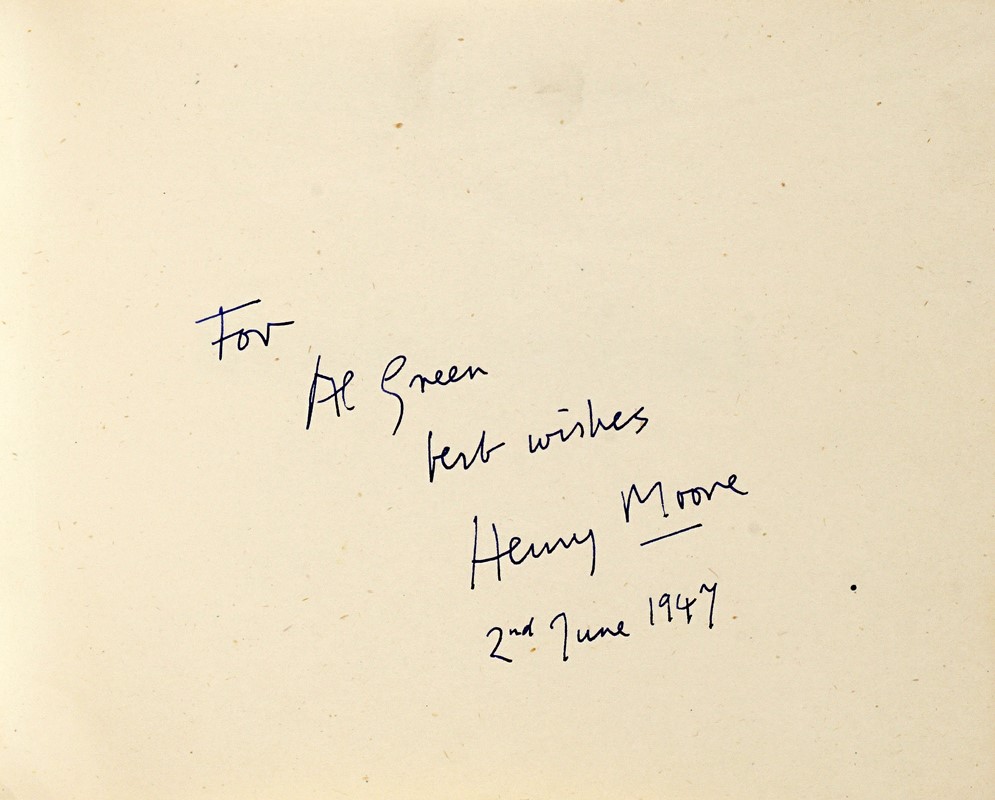 For
Al Green
best wishes
Henry Moore
2nd June 1947